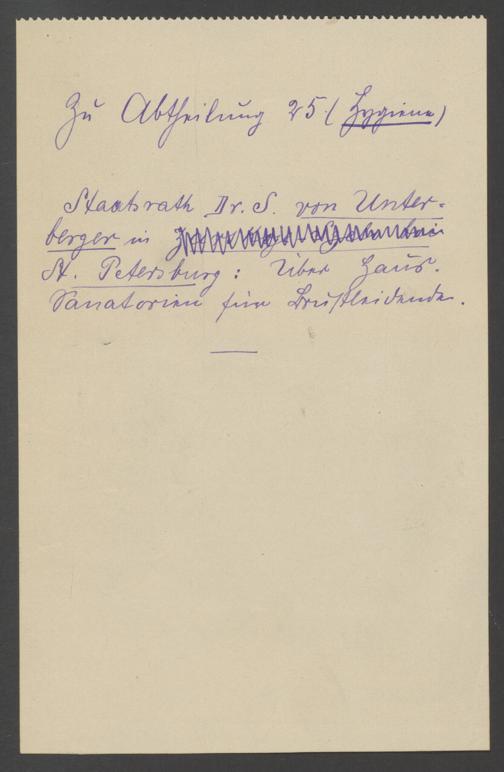 Zu Abtheilung 25 (Hygiene)
Staatsrath Dr. S. von Unter-
berger in
St. Petersburg: Über Haus-
Sanatorien für Brustleidende.